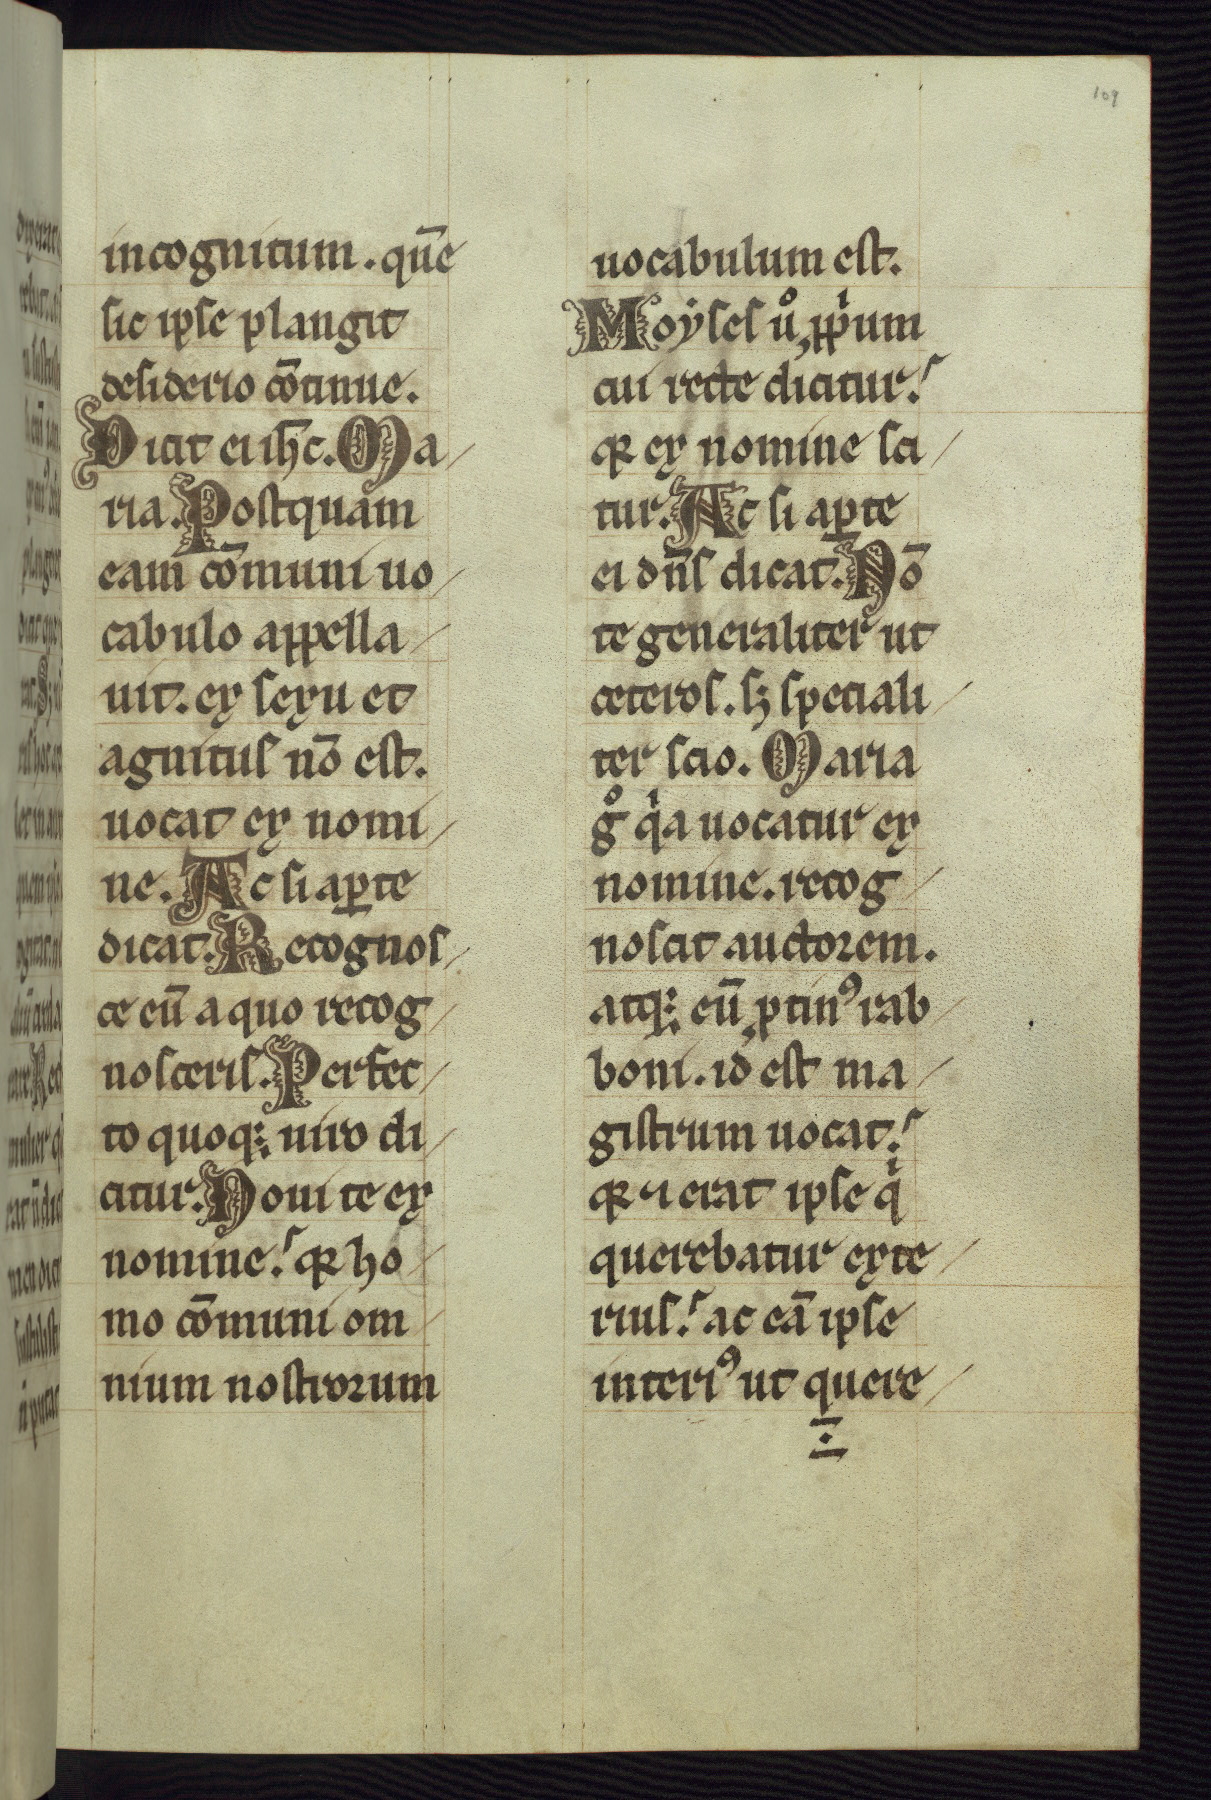 109
incognitum. quē
sic ipse plangit
desiderio cōtinue.
Dicit ei ihc̄. Ma/
ria. Postquam
eam cōmuni uo/
cabulo appella/
uit. ex sexu et
agnitus nō est.
uocat ex nomi/
ne. Ac si ap̲te
dicat. Recognos/
ce eū a quo recog/
nosceris. Perfec/
to quoq; uiro di/
citur. Noui te ex
nomine! qꝛ ho/
mo cōmuni om/
nium nostrorum
uocabulum est.
Moẏses uͦ, ꝓpͥum
cui recte dicitur!
qꝛ ex nomine sci/
tur. Ac si aꝑte
ei dn̄s dicat. Nō
te generaliter ut
ceteros. sꝫ speciali/
ter scio. Maria
gͦ qͥa uocatur ex
nomine. recog/
noscit auctorem.
atq; eū ꝓtinꝰ rab/
boni. id̄ est ma/
gistrum uocat!
qꝛ ⁊ erat ipse qͥ
querebatur exte/
rius! ac eā ipse
interiꝰ ut quere/